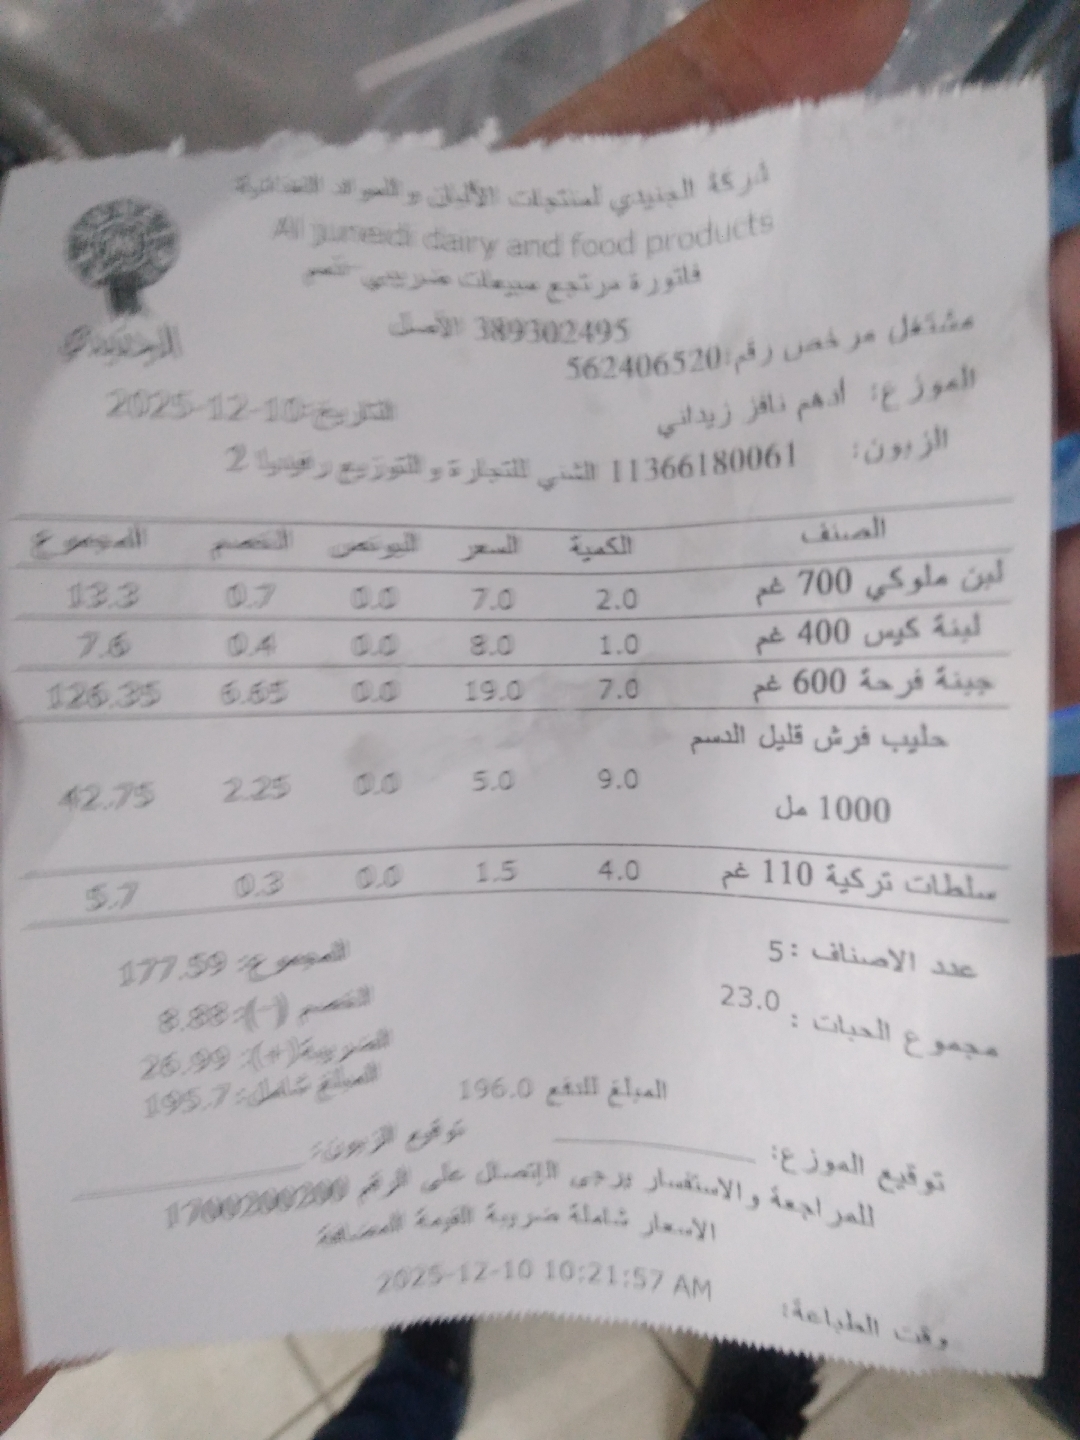 شركة الجنيدي لمنتجات الألبان والمواد الغذائية
Al junedi dairy and food products
فاتورة مرتجع مبيعات ضريبي خصم
389302495 الأصل
الجنيدي
مشتغل مرخص رقم:562406520
الموزع: أدهم نافز زيداني التاريخ:2025-12-10
الزبون: 11366180061 الشني للتجارة والتوزيع رفيديا 2
الصنف الكمية السعر البونص الخصم المجموع
لبن ملوكي 700 غم 2.0 7.0 0.0 0.7 13.3
لبنة كيس 400 غم 1.0 8.0 0.0 0.4 7.6
جبنة فرحة 600 غم 7.0 19.0 0.0 6.65 126.35
حليب فرش قليل الدسم
1000 مل 9.0 5.0 0.0 2.25 42.75
سلطات تركية 110 غم 4.0 1.5 0.0 0.3 5.7
عدد الاصناف :5 المجموع: 177.59
مجموع الحبات : 23.0 الخصم (-): 8.88
الضريبة(+): 26.99
المبلغ شامل: 195.7
المبلغ للدفع 196.0
توقيع الموزع: توقيع الزبون:
للمراجعة والاستفسار يرجى الإتصال على الرقم 1700200200
الاسعار شاملة ضريبة القيمة المضافة
وقت الطباعة: 2025-12-10 10:21:57 AM